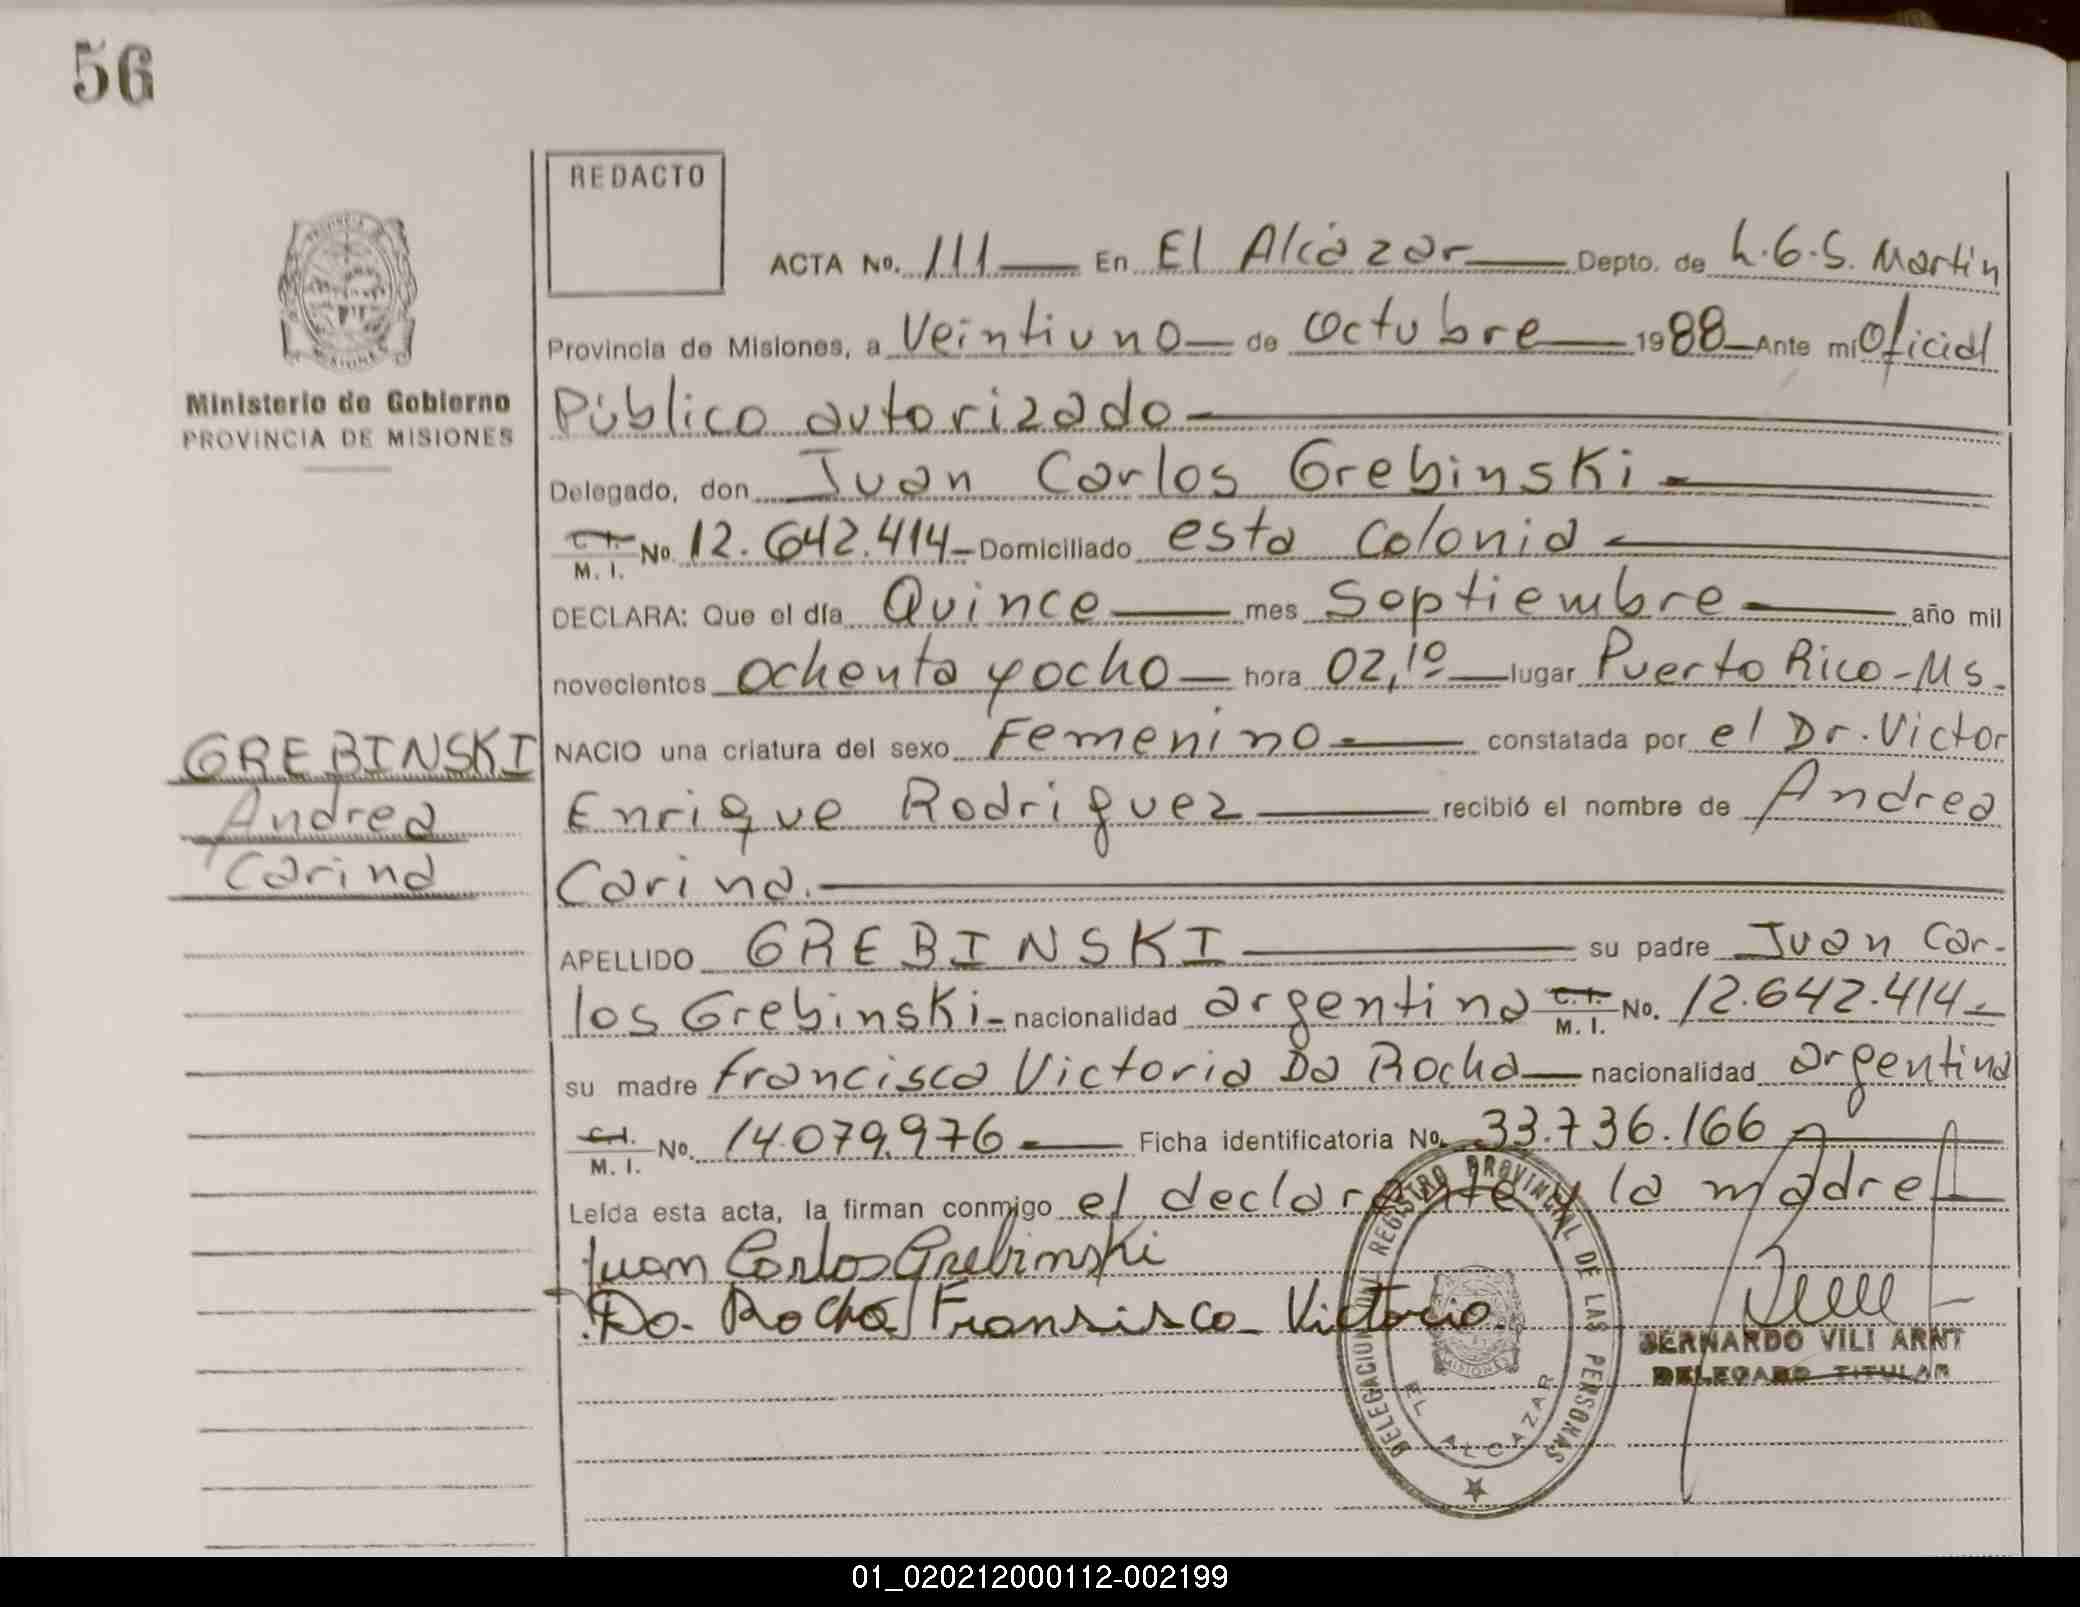 56
REDACTO
ACTA No. 111 En El Alcázar Depto. de L.G.S. Martín
Provincia de Misiones, a Veintiuno de Octubre 1988 Ante mi Oficial
Ministerio de Gobierno
PROVINCIA DE MISIONES
Público autorizado
Delegado, don Juan Carlos Grebinski
C. I. M. I. No. 12.642.414 Domiciliado esta Colonia
DECLARA: Que el día Quince mes Septiembre año mil
novecientos ochenta y ocho hora 02,10 lugar Puerto Rico-Ms.
GREBINSKI
Andrea
Carina
NACIO una criatura del sexo Femenino constatada por el Dr. Victor
Enrique Rodriguez recibió el nombre de Andrea
Carina.
APELLIDO GREBINSKI su padre Juan Car-
los Grebinski nacionalidad argentina C. I. M. I. No. 12.642.414
su madre Francisca Victoria Da Rocha nacionalidad argentina
C. I. M. I. No. 14.079.976 Ficha identificatoria No. 33.736.166
Leída esta acta, la firman conmigo el declarante y la madre
Juan Carlos Grebinski
Da. Rocha Fransisca Victoria
DELEGACION REGISTRO PROVINCIAL DE LAS PERSONAS
EL ALCAZAR
MISIONES
BERNARDO VILI ARNT
DELEGADO TITULAR
01_020212000112-002199